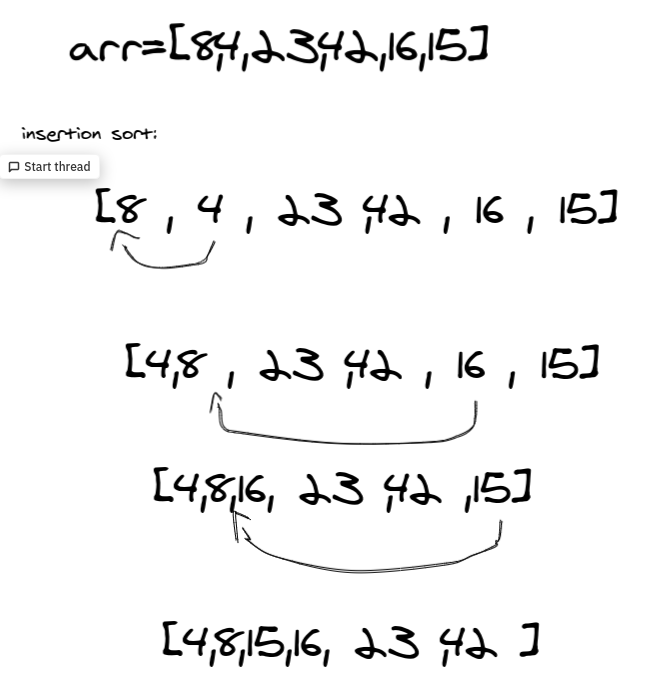 arr=[8,4,23,42,16,15]
insertion sort:
Start thread
[8 , 4 , 23 ,42 , 16 , 15]
[4,8 , 23 ,42 , 16 , 15]
[4,8,16, 23 ,42 ,15]
[4,8,15,16, 23 ,42 ]